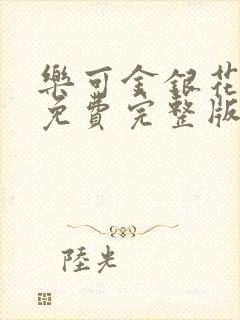 樂可金銀花
免費完整版
陸光